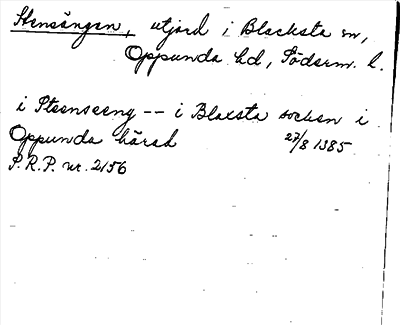 Stensängen, utjord i Blacksta sn,
Oppunda hd, Söderm. l.
i Steenseeng -- i Blaxsta socken i
Oppunda härad 27/8 1385
P.R.P. nr. 2156